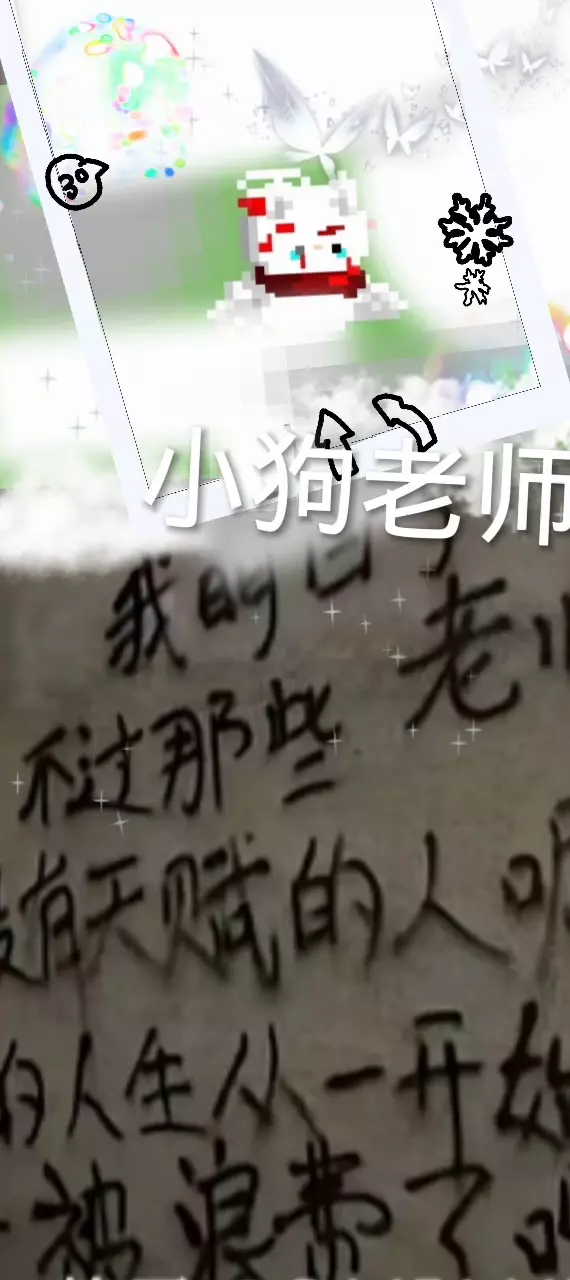 3°
小狗老师
我的
老师
不过那些
没有天赋的人
的人生从一开始
被浪费了吗